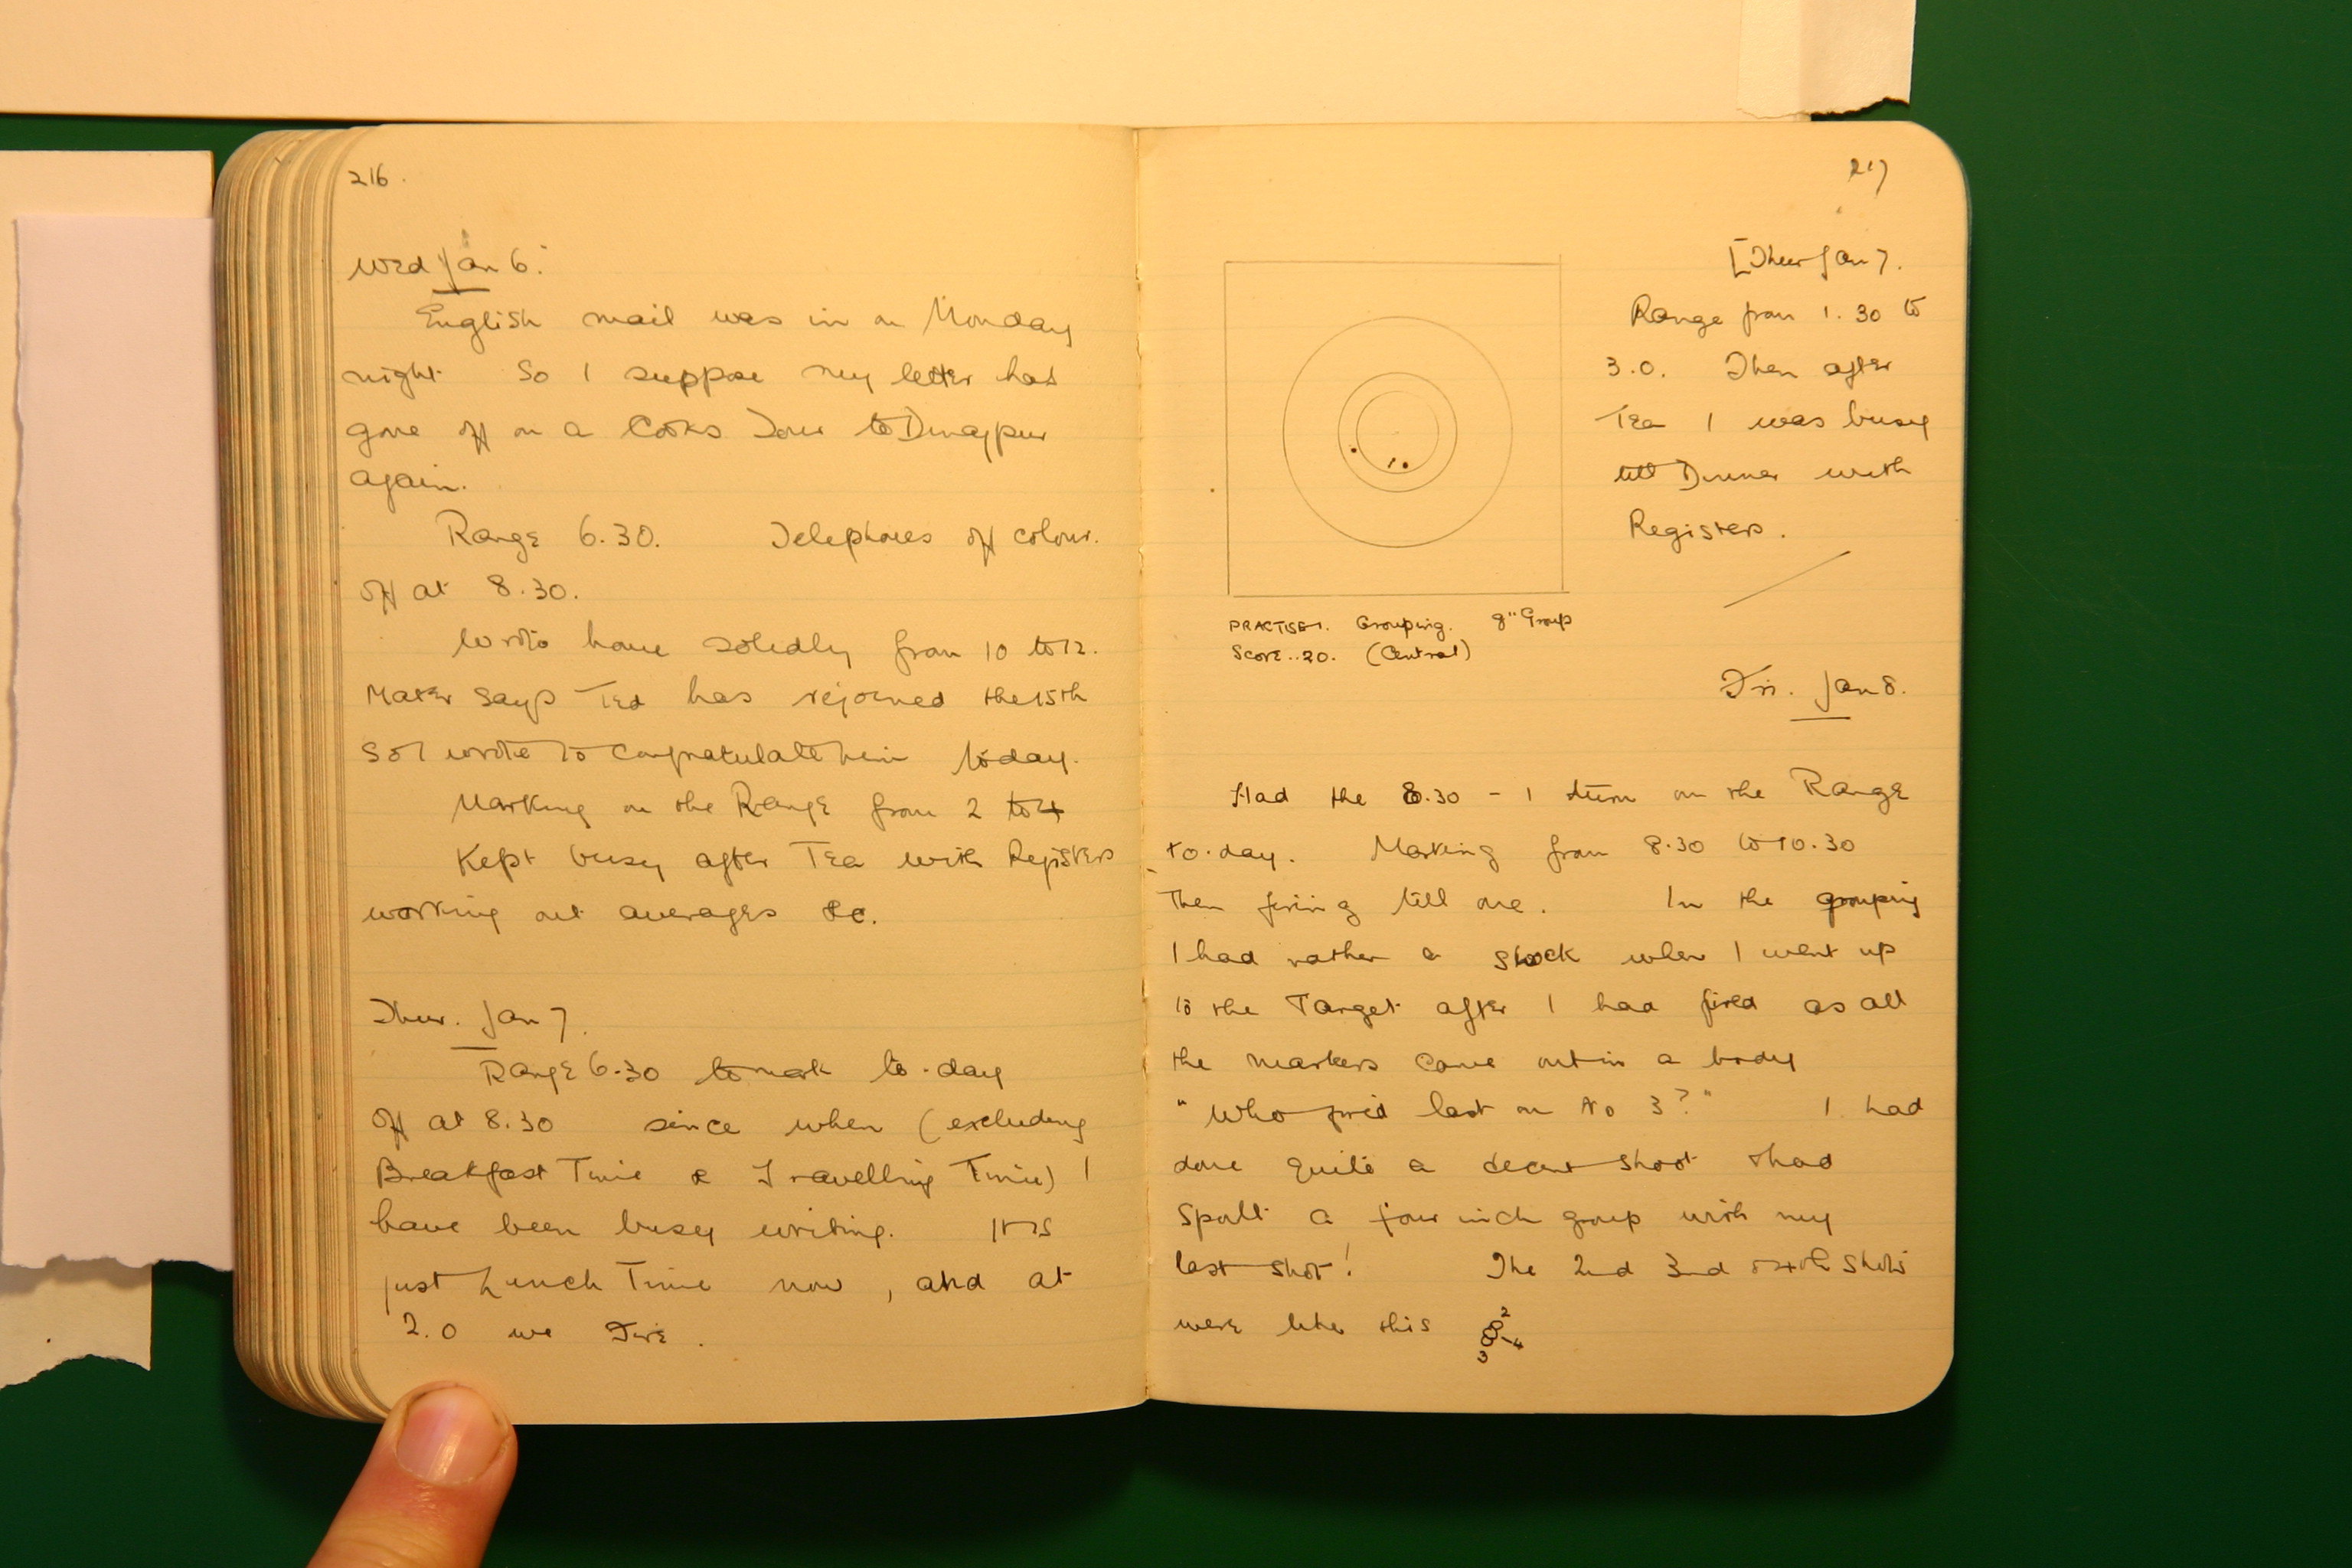 216.
Wed Jan 6.
English mail was in on Monday
night. So I suppose my letter has
gone off on a Cooks Tour to Dinajpur
again.
Range 6.30. Telephones off colour.
Off at 8.30.
Wrote home solidly from 10 to 12.
Mater says Ted has rejoined the 15th
so I wrote to congratulate him today.
Marking on the Range from 2 to 4
Kept busy after Tea with Registers
working out averages &c.
Thur. Jan 7.
Range 6.30 to mark to-day
Off at 8.30 since when (excluding
Breakfast Time & Travelling Time) I
have been busy writing. It is
just Lunch Time now, and at
2.0 we Fire.
217
[Thur Jan 7.
Range from 1.30 to
3.0. Then after
Tea I was busy
till Dinner with
Registers.
PRACTISE 1. Grouping. 8" Group
Score..20. (Central)
Fri. Jan 8.
Had the 8.30 - 1 turn on the Range
to-day. Marking from 8.30 to 10.30
Then firing till one. In the grouping
I had rather a shock when I went up
to the Target after I had fired as all
the markers came out in a body
"Who fired last on No 3?" I had
done quite a decent shoot & had
spoilt a four inch group with my
last shot! The 2nd 3rd & 4th shots
were like this 2 3 4